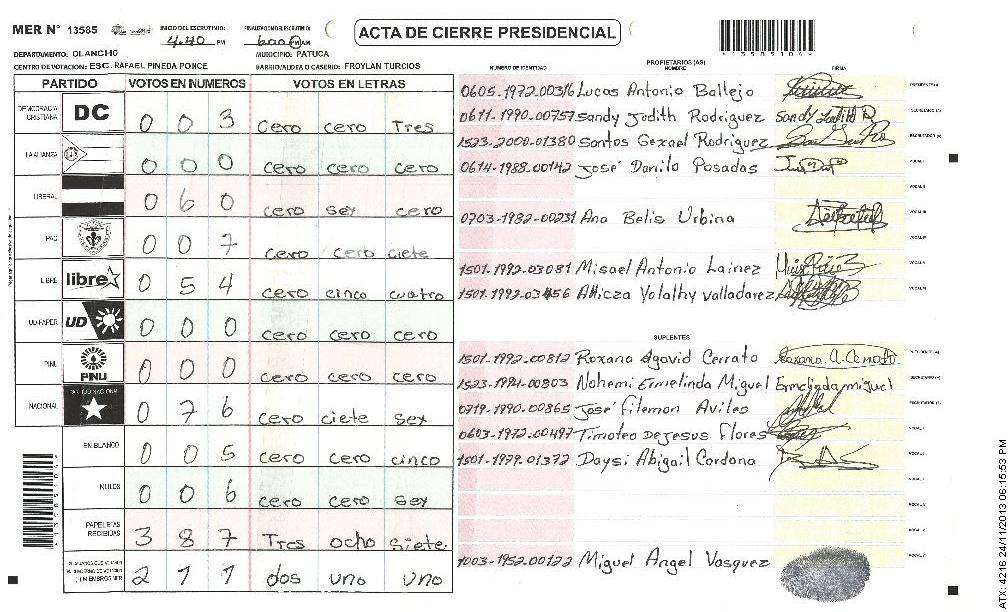 MER N° 13585
INICIO DEL ESCRUTINIO: 4.40 PM
FINALIZACION DEL ESCRUTINIO: 6:00 PM AM
ACTA DE CIERRE PRESIDENCIAL
DEPARTAMENTO: OLANCHO
MUNICIPIO: PATUCA
CENTRO DE VOTACION: ESC. RAFAEL PINEDA PONCE
BARRIO/ALDEA O CASERIO: FROYLAN TURCIOS
PARTIDO VOTOS EN NUMEROS VOTOS EN LETRAS
DEMOCRACIA CRISTIANA DC 0 0 3 cero cero Tres
LA ALIANZA 0 0 0 cero cero cero
LIBERAL 0 6 0 cero sey cero
PAC 0 0 7 cero cero ciete
LIBRE libre 0 5 4 cero cinco cuatro
UD-FAPER UD 0 0 0 cero cero cero
PINU PINU 0 0 0 cero cero cero
NACIONAL PARTIDO NACIONAL 0 7 6 cero ciete sey
EN BLANCO 0 0 5 cero cero cinco
NULOS 0 0 6 cero cero sey
PAPELETAS RECIBIDAS 3 8 7 Tres ocho siete
2 1 1 dos uno uno
PROPIETARIOS (AS)
NUMERO DE IDENTIDAD NOMBRE FIRMA
0605-1972-00316 Lucas Antonio Ballejo PRESIDENTE (A)
0611-1990-00757 Sandy Judith Rodriguez Sandy Judith R SECRETARIO (A)
1523-2000-01380 Santos Gexael Rodriguez ESCRUTADOR (A)
0614-1988-00142 José Danilo Posadas VOCAL I
VOCAL II
0703-1982-00231 Ana Belis Urbina VOCAL III
VOCAL IV
1501-1992-03081 Misael Antonio Lainez VOCAL V
Yolathy Valladarez VOCAL VI
SUPLENTES
1501-1992-00812 Roxana Agavid Cerrato Roxana. A. Cerrato. PRESIDENTE (A)
1523-1994-00803 Nohemi Ermelinda Miguel Ermelinda miguel SECRETARIO (A)
0219-1990-00865 José filemon Aviles ESCRUTADOR (A)
0603-1972-00497 Timoteo Dejesus Flores VOCAL I
1501-1979-01372 Daysi Abigail Cardona VOCAL II
VOCAL III
VOCAL IV
VOCAL V
1003-1952-00122 Miguel Angel Vasquez VOCAL VI
ATX: 4216 24/11/2013 06:15:53 PM